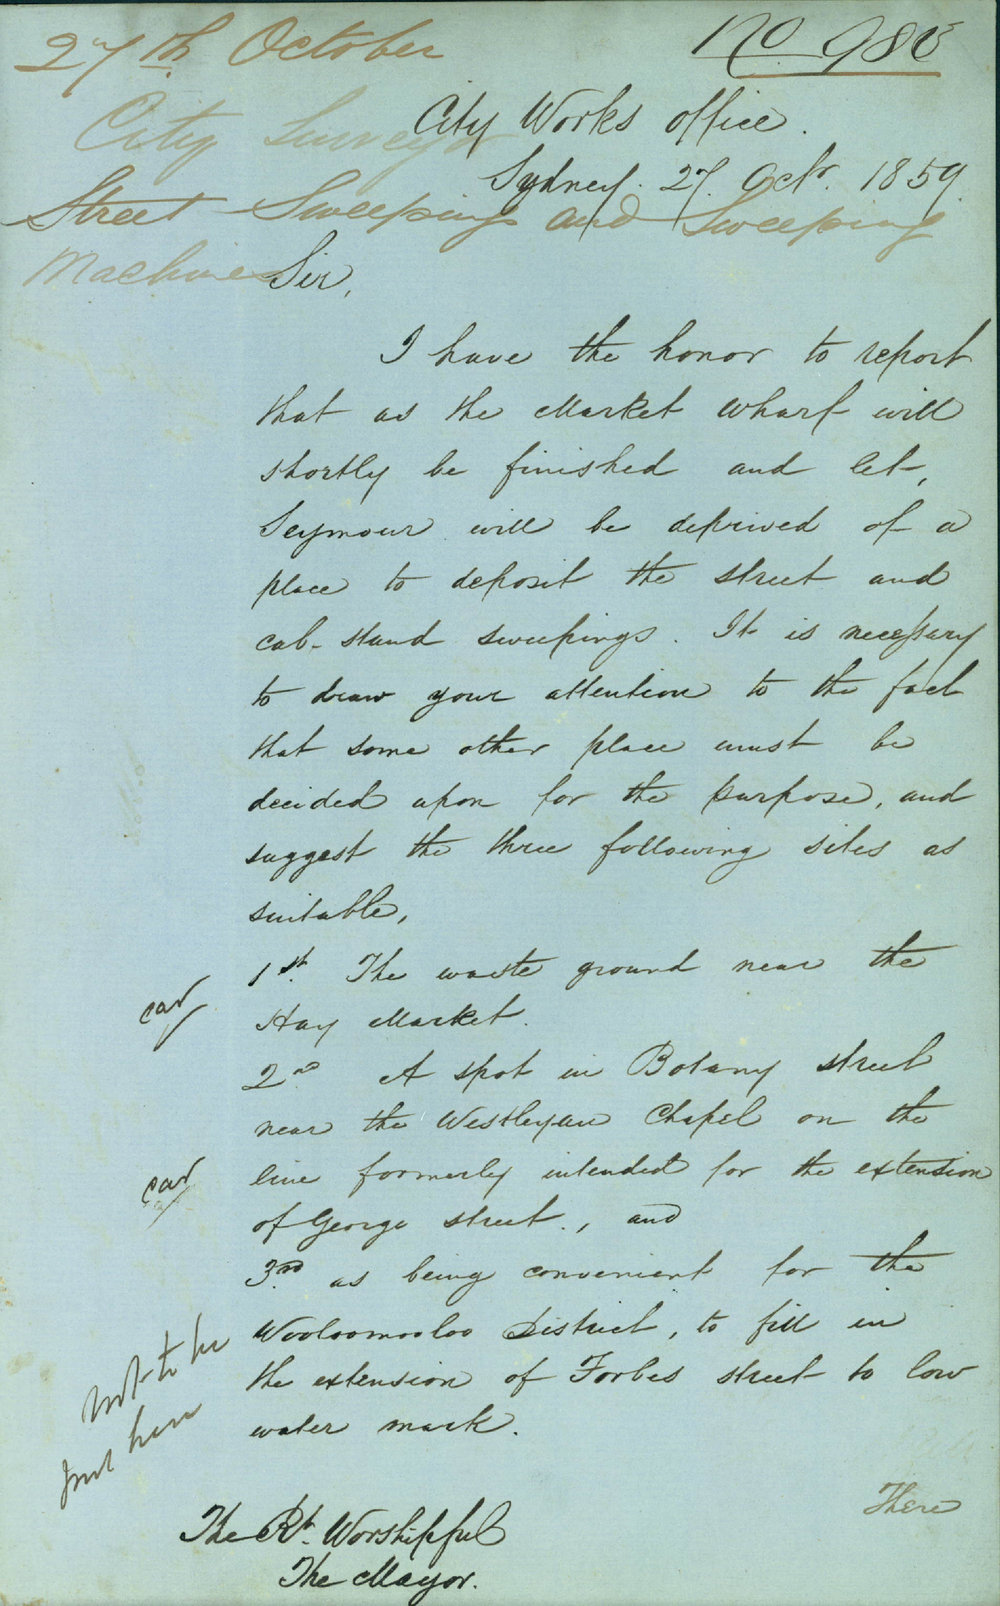 27th October
No 986
City Surveyor
City Works office.
Sydney. 27. Octr. 1859.
Street Sweepings and Sweeping
Machines
Sir,
I have the honor to report
that as the Market Wharf will
shortly be finished and let,
Seymour will be deprived of a
place to deposit the street and
cab-stand sweepings. It is necessary
to draw your attention to the fact
that some other place must be
decided upon for the purpose, and
suggest the three following sites as
suitable,
1st. The waste ground near the
Hay Market.
car
2nd A spot in Botany street
near the Westleyan Chapel on the
line formerly intended for the extension
car
of George street., and
3rd as being convenient for the
Wooloomooloo District, to fill in
the extension of Forbes street to low
water mark.
not to be
put here
There
The Rt. Worshipful
The Mayor.